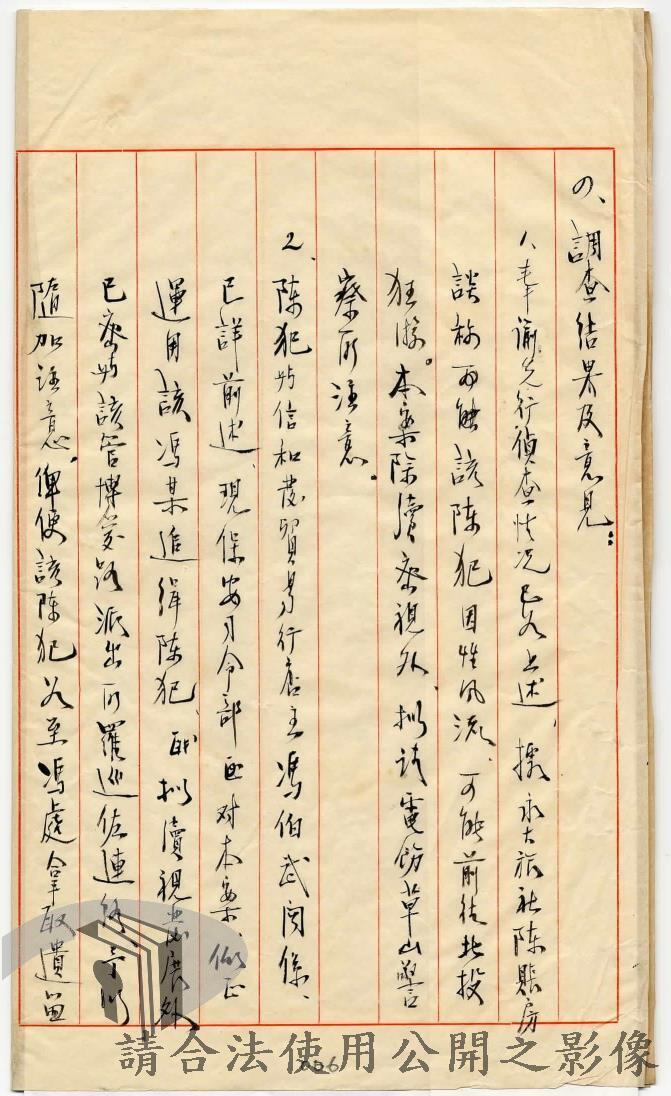 四、調查結果及意見：
1、奉諭先行偵查情况已如上述、據永大旅社陳賬房
談称可能該陳犯因性風流、可能前往北投
狂遊。本案除續密視外、擬請電飭草山警
察所注意。
2、陳犯與信和發貿易行店主馮伯武関係、
已詳前述、現保安司令部正對本案、似正
運用該馮某追緝陳犯、職擬續視其發展外
已密與該管博愛路派出所羅巡佐連絡予以
隨加注意。俾使該陳犯如至馮處拿取遺留
請合法使用公開之影像